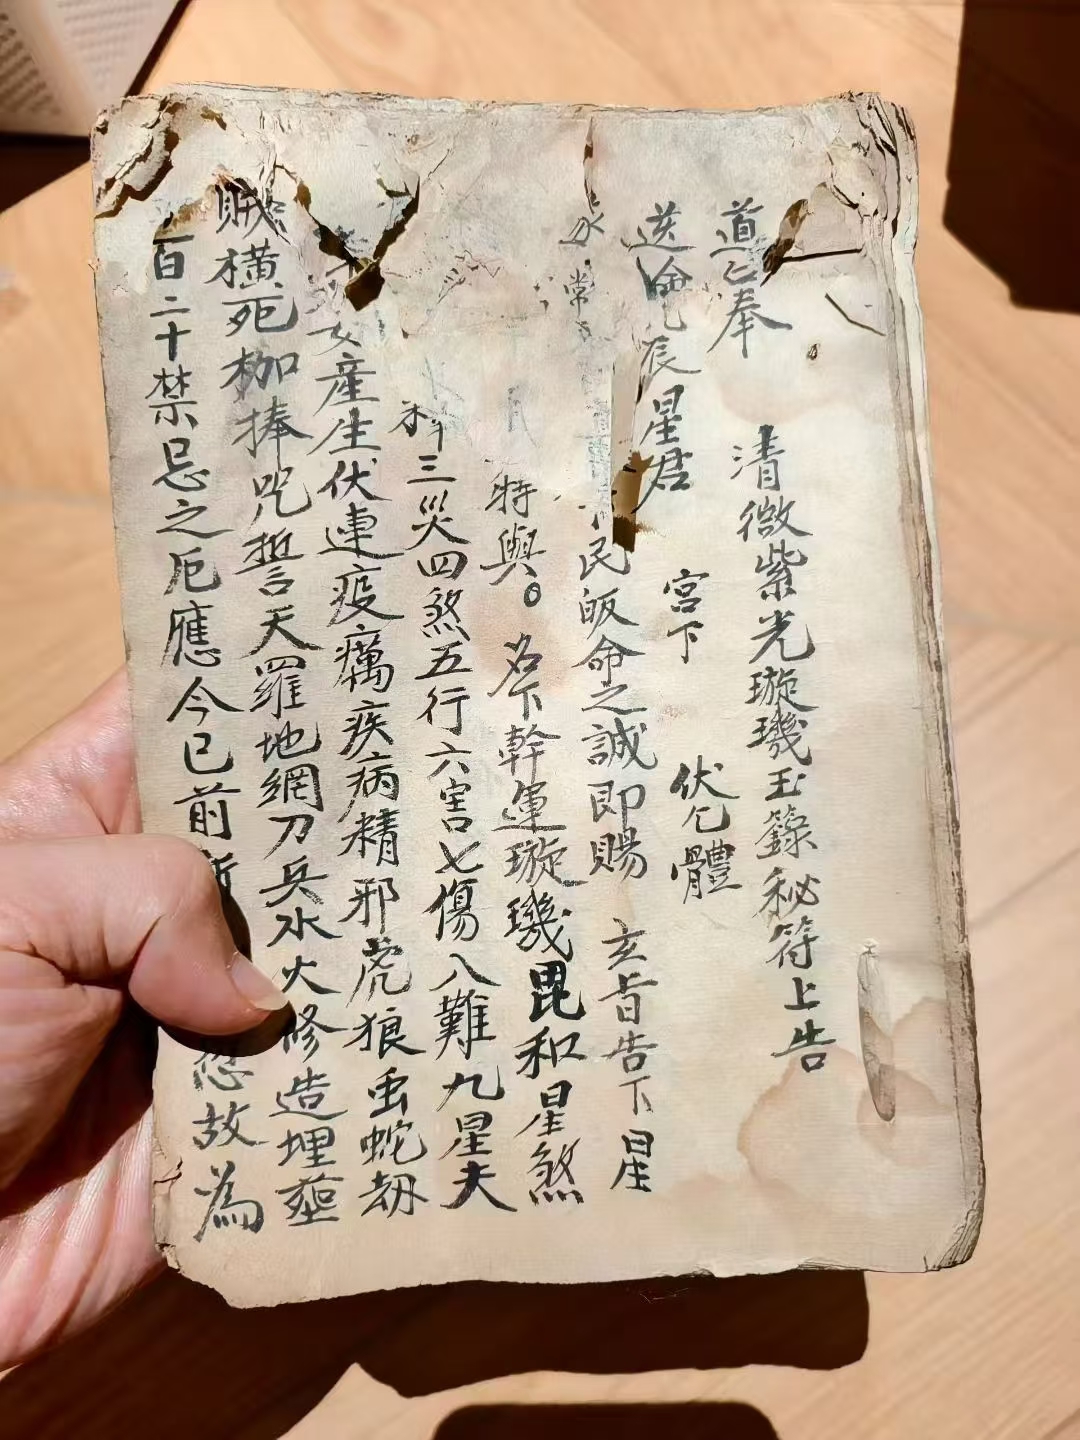 道仁奉
清微紫光璇璣玉籙秘符上告
送 辰星君 宮下 伏乞體
民皈命之誠即賜 玄旨告下星
特與。名下幹運璇璣毘和星煞
三災四煞五行六害七傷八難九星夫
女產生伏連疫癘疾病精邪虎狼虫蛇劫
賊橫死枷捧咒誓天羅地網刀兵水火修造埋葬
百二十禁忌之厄應今已前 愆故為